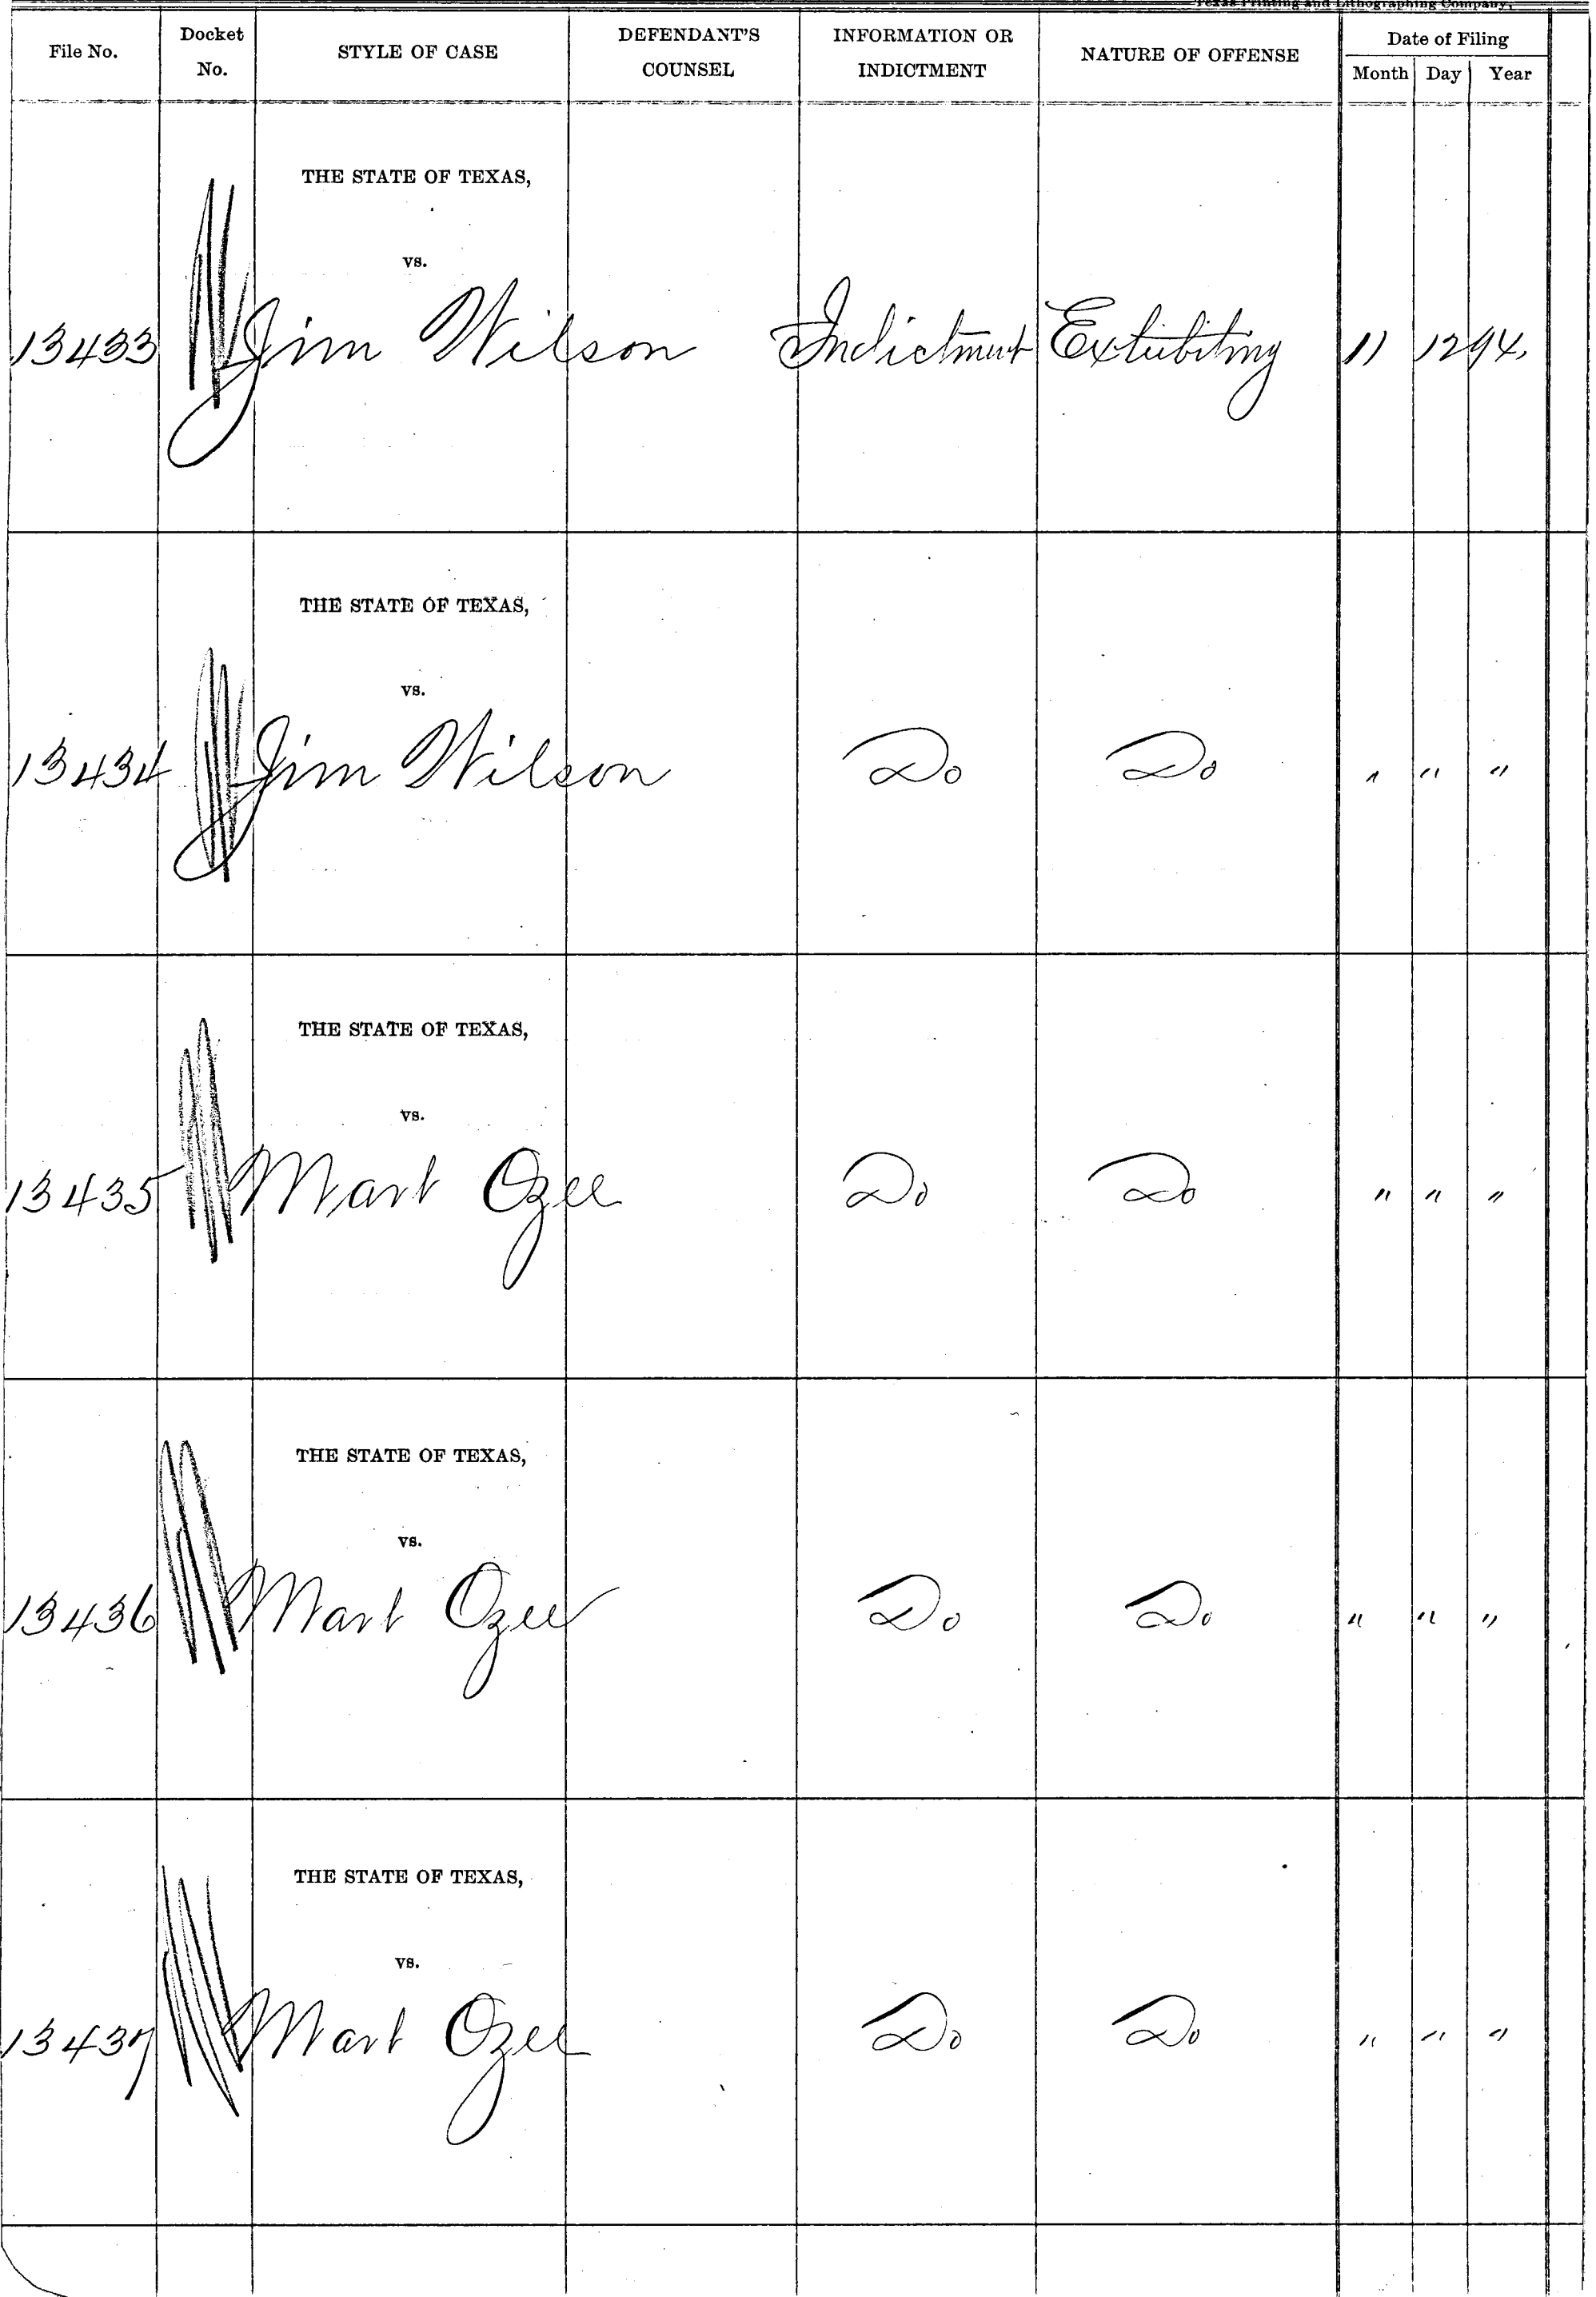 Texas Printing and Lithographing Company,
File No. Docket No. STYLE OF CASE DEFENDANT'S COUNSEL INFORMATION OR INDICTMENT NATURE OF OFFENSE Date of Filing
Month Day Year
THE STATE OF TEXAS,
vs.
13433 Jim Wilson Indictment Exhibiting 11 12 94.
THE STATE OF TEXAS,
vs.
13434 Jim Wilson Do Do " " "
THE STATE OF TEXAS,
vs.
13435 Mart Ozee Do Do " " "
THE STATE OF TEXAS,
vs.
13436 Mart Ozee Do Do " " "
THE STATE OF TEXAS,
vs.
13437 Mart Ozee Do Do " " "